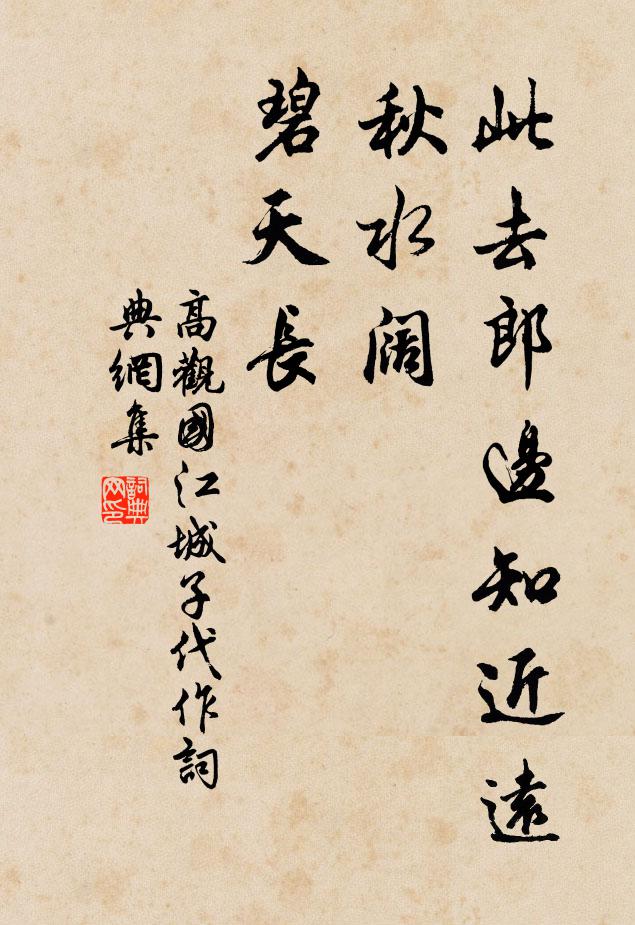 此去郎邊知近遠
秋水闊
碧天長
高觀國江城子代作詞
典網集
詞典网印